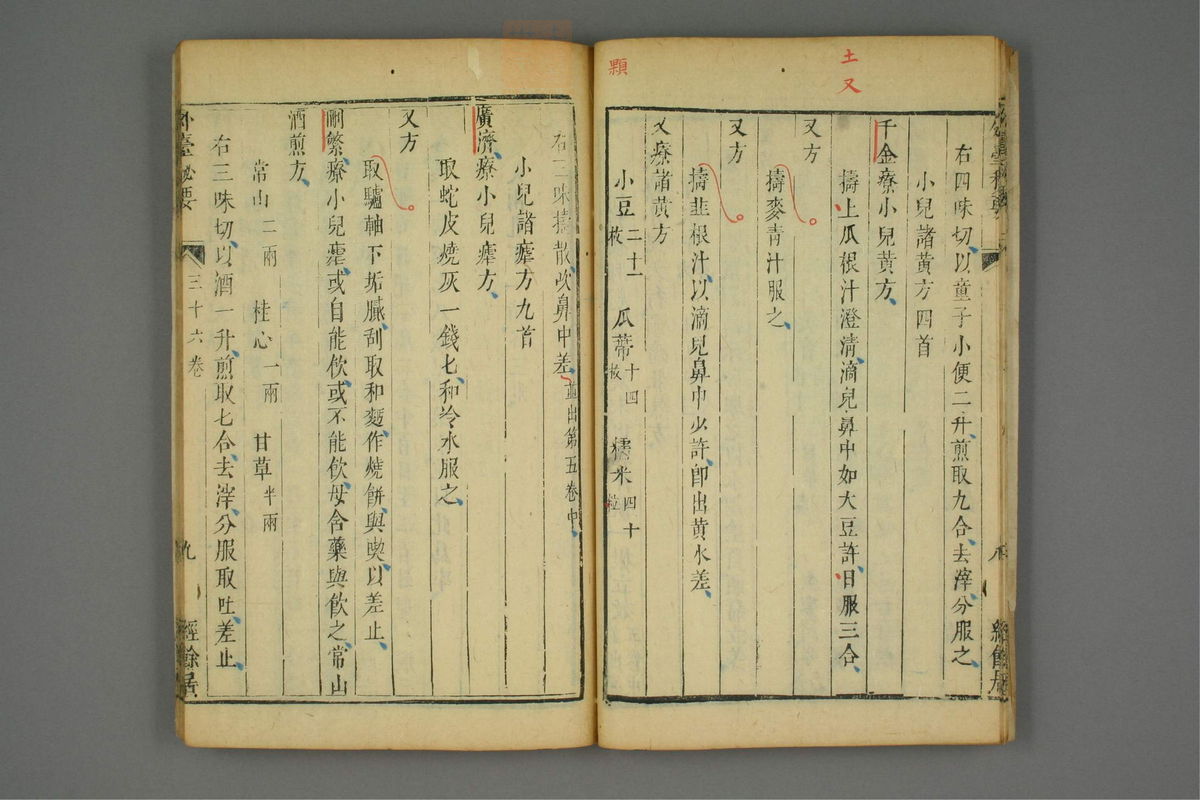 土又
顆
右四味切以童子小便二升煎取九合去滓分服之
小兒諸黃方四首
千金療小兒黃方
擣土瓜根汁澄清滴兒鼻中如大豆許日服三合
又方
擣麥青汁服之
又方
擣韭根汁以滴兒鼻中少許即出黃水差
又療諸黃方
小豆二十一枚 瓜蒂十四枚 糯米四十粒
右三味擣散吹鼻中差並出第五卷中
小兒諸瘧方九首
廣濟療小兒瘧方
取蛇皮燒灰一錢匕和冷水服之
又方
取驢軸下垢膩刮取和麵作燒餅與喫以差止
劉繁療小兒瘧或自能飲或不能飲母含藥與飲之常山
酒煎方
常山二兩 桂心一兩 甘草半兩
右三味切以酒一升煎取七合去滓分服取吐差止
外臺秘要 三十六卷 九 經餘居